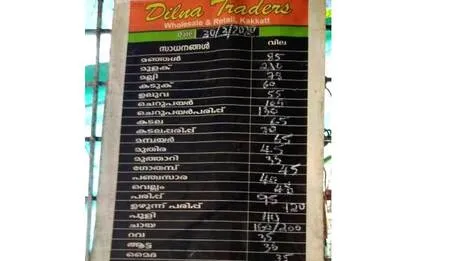 Dilna Traders
Wholesale & Retail, Kakkatt
30/3/2020
സാധനങ്ങൾ വില
മഞ്ഞൾ 85
മുളക് 210
മല്ലി 78
കടുക് 60
ഉലുവ 55
ചെറുപയർ
ചെറുപയർപരിപ്പ് 130
കടല 65
കടലപ്പരിപ്പ്
മമ്പയർ
മുതിര 45
മുത്താറി 35
ഗോതമ്പ് 45
പഞ്ചസാര 40
വെല്ലം 48
പരിപ്പ് 95
ഉഴുന്ന് പരിപ്പ് 120
പുളി
ചായ 160/200
റവ 35
ആട്ട
മൈദ 35